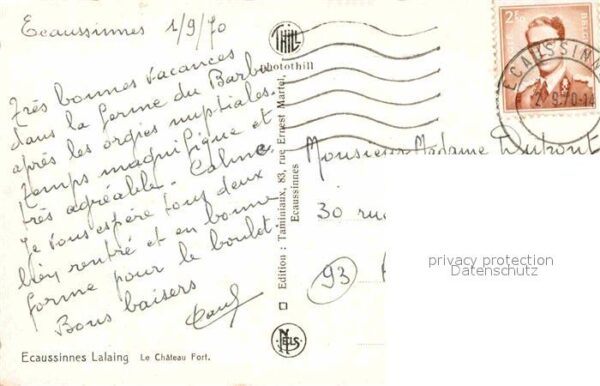 Ecaussinnes 1/9/70
Très bonnes vacances
dans la ferme du Barbu
après les orgies nuptiales.
Temps magnifique et
très agréable. Calme.
Je vous espère tous deux
bien rentré et en bonne
forme pour le boulot.
Bons baisers
Ecaussinnes Lalaing Le Château Fort.
THILL
photothill
Edition : Taminiaux, 83, rue Ernest Martel,
Ecaussinnes
NELS
2F50
ECAUSSINNE
2 9.70-14
Monsieur Madame Dupont
30 rue
93
privacy protection
Datenschutz